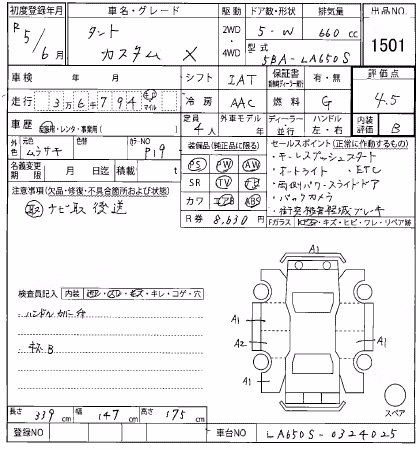 初度登録年月 車名・グレード 駆動 ドア数・形状 排気量 出品NO
R 5/6月 タント 2WD・4WD 5-W 660cc 1501
カスタム X 型式 5BA-LA650S
車検 年 月 シフト IAT 保証書 有・無 評価点
走行 36794 km マイル 冷房 AAC 燃料 G 4.5
車歴 自家用・レンタ・事業用( ) 定員 4人 外車モデル 年 ディーラー 並行 ハンドル 左・右 内装評価 B
色 元色 ムラサキ 色替 カラーNO P19
名義変更期限 月 日迄 積載 t
装備品(純正品に限る) セールスポイント(正常に作動するもの)
PS PW AW
SR TV ナビ
カワ エアB ABS
・キーレスプッシュスタート
・オートライト ・ETC
・両側パワースライドドア
・バックカメラ
・衝突被害軽減ブレーキ
注意事項(欠品・修復・不具合箇所および状態)
取 ナビ取 後送
R券 8,630円
Fガラス キズ・ヒビ・ワレ・リペア跡
検査員記入 内装 ヨゴレ・スレ・キズ・キレ・コゲ・穴
・ハンドルカバー付
・キズB
A1
A1
A2
A1
A1
A1
スペア
長さ 339cm 幅 147cm 高さ 175cm
登録NO 車台NO LA650S-0324025